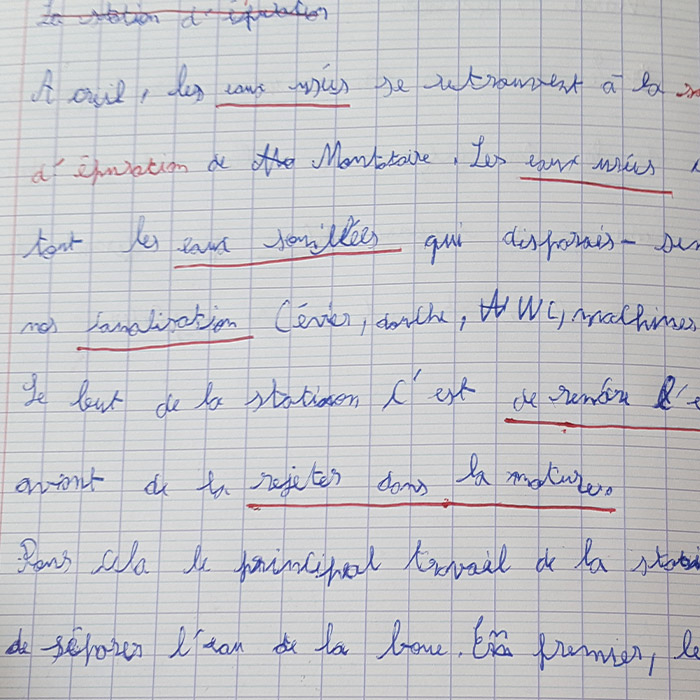 La station d'épuration
A creil, les eaux usées se retrouvent à la
d'épuration de Montataire. Les eaux usées
tout les eaux souillées qui disparais-
nos canalisation (évier, douche, WC, machines
Le but de la station c'est de rendre l'e
avant de la rejeter dans la nature.
Pour cela le principal travail de la stati
de séparer l'eau de la boue. En premier, le